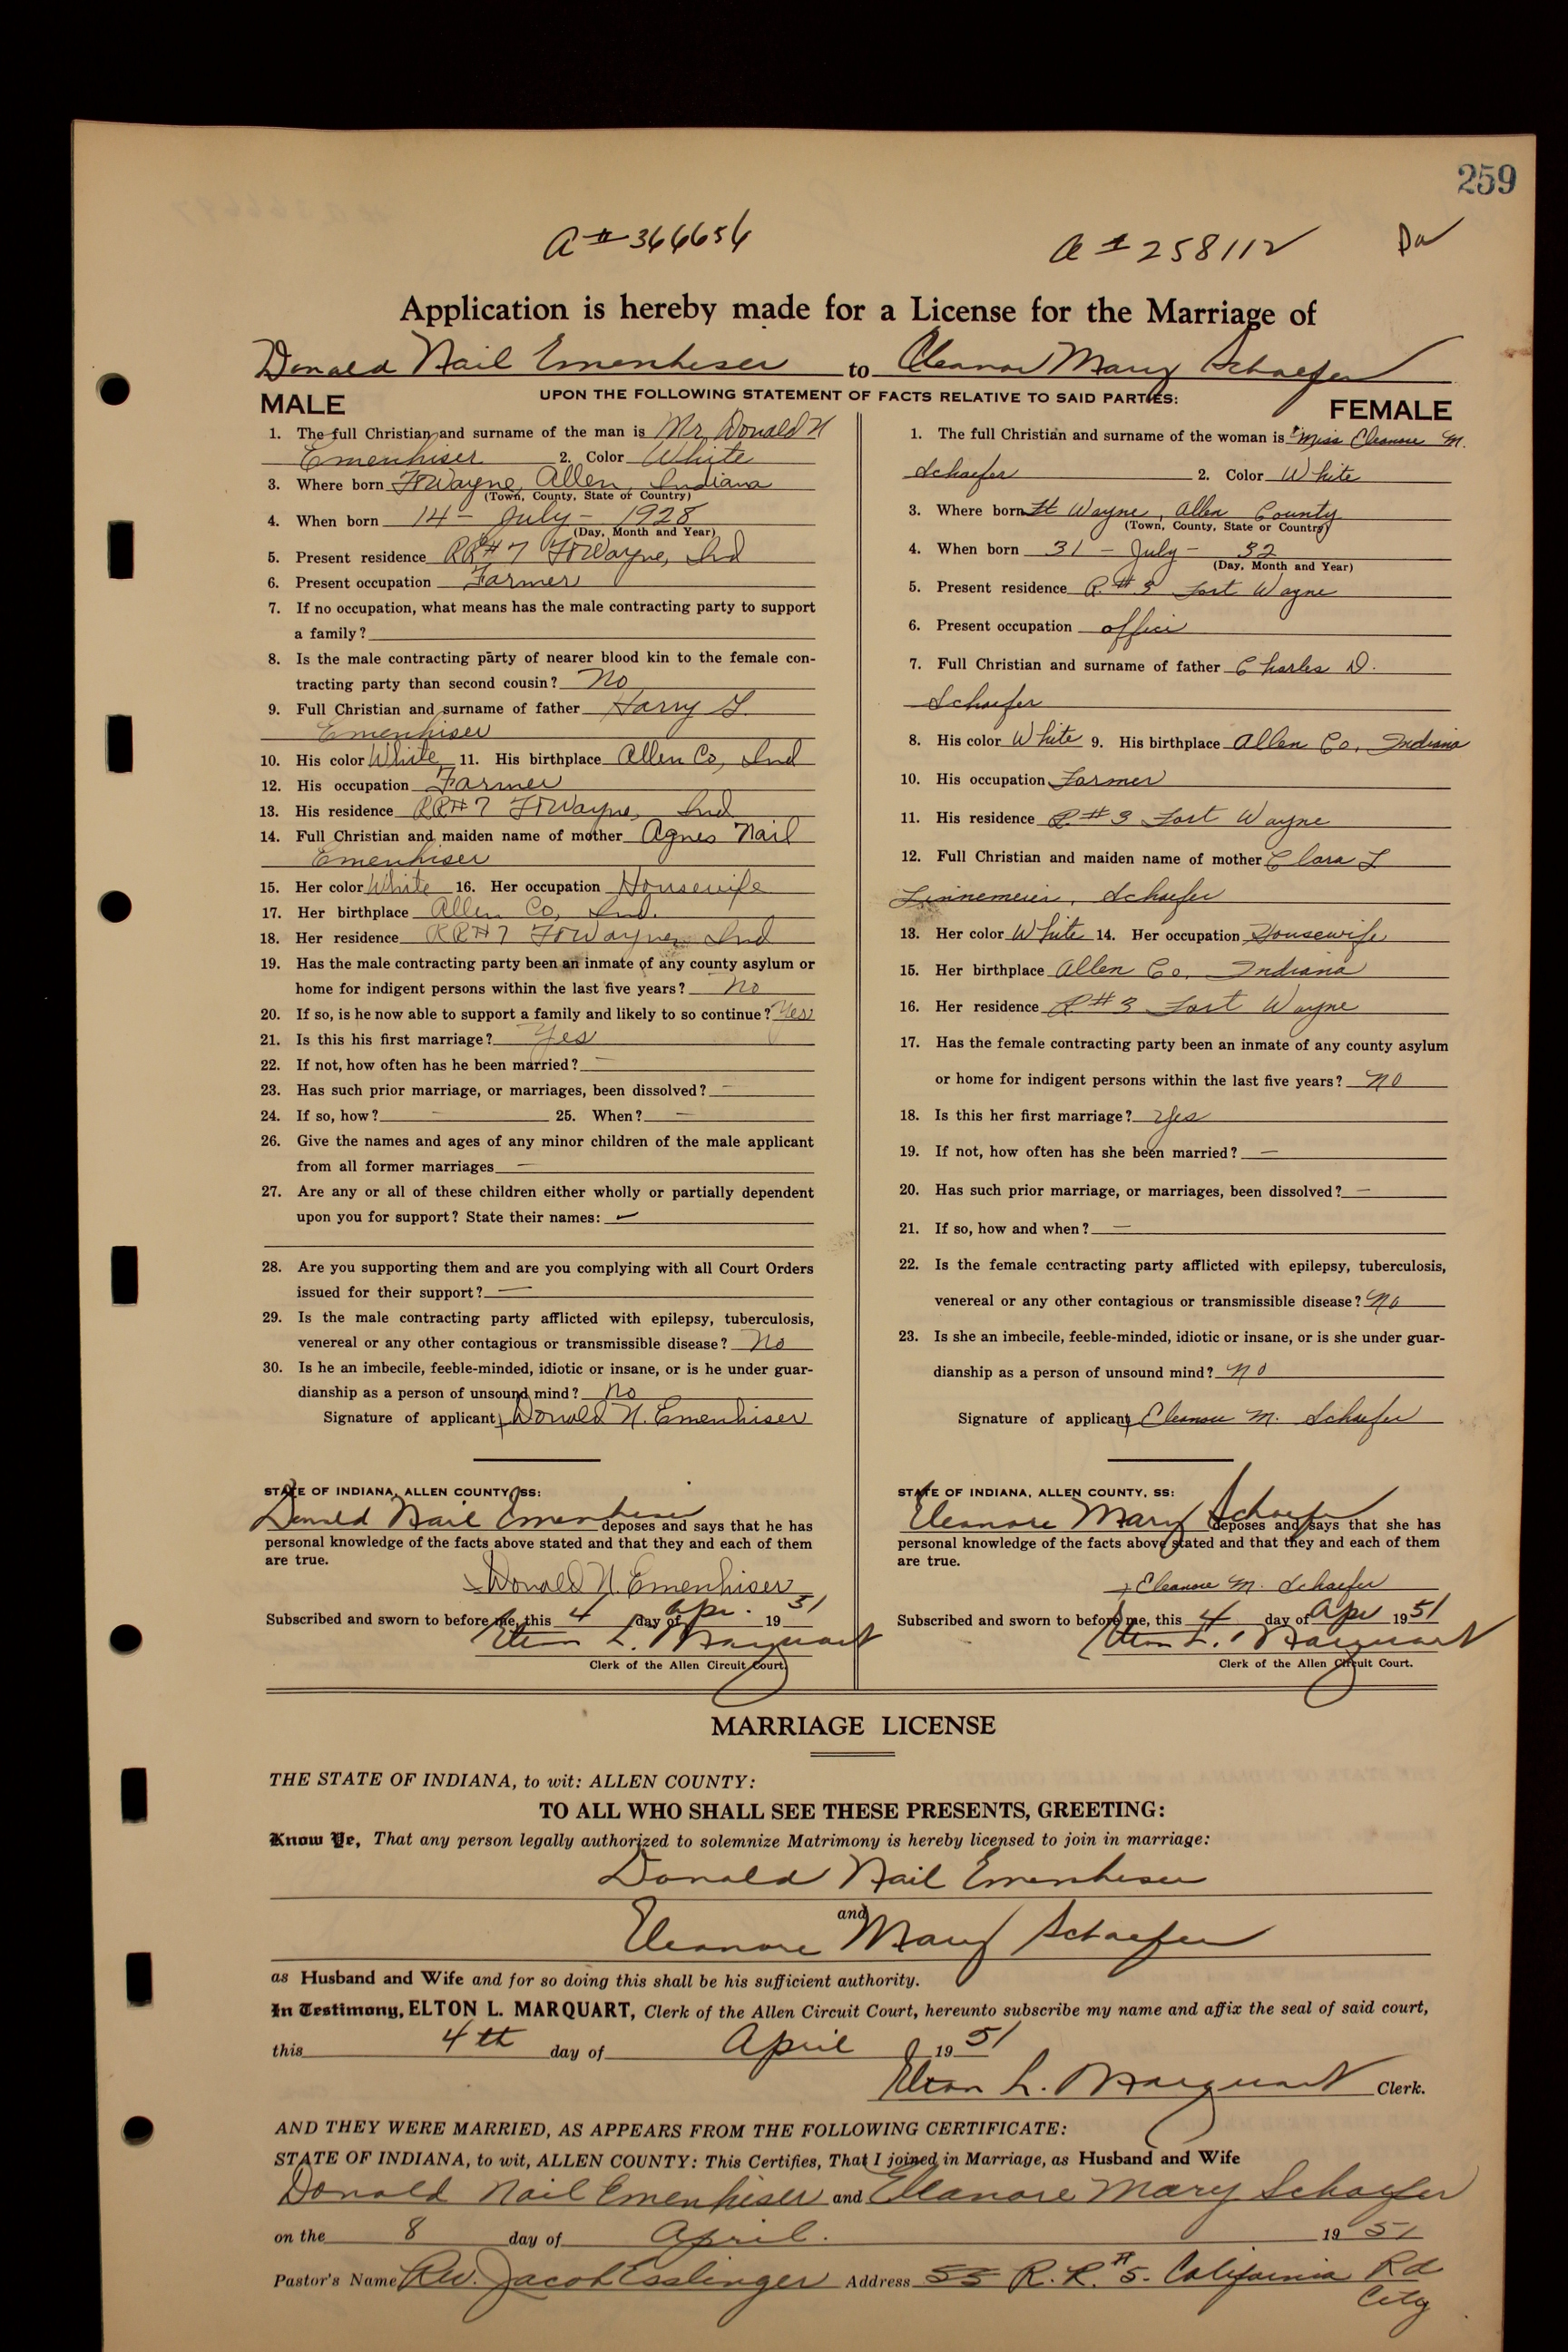 259
A # 366656
A # 258112
Application is hereby made for a License for the Marriage of
Donald Nail Emenhiser to Eleanor Mary Schaefer
UPON THE FOLLOWING STATEMENT OF FACTS RELATIVE TO SAID PARTIES:
MALE
1. The full Christian and surname of the man is Mr Donald N
Emenhiser 2. Color White
3. Where born Ft Wayne, Allen, Indiana
(Town, County, State or Country)
4. When born 14 - July - 1928
(Day, Month and Year)
5. Present residence RR# 7 Ft Wayne, Ind
6. Present occupation Farmer
7. If no occupation, what means has the male contracting party to support
a family?
8. Is the male contracting party of nearer blood kin to the female con-
tracting party than second cousin? No
9. Full Christian and surname of father Harry G.
Emenhiser
10. His color White 11. His birthplace Allen Co, Ind
12. His occupation Farmer
13. His residence RR# 7 Ft Wayne, Ind
14. Full Christian and maiden name of mother Agnes Nail
Emenhiser
15. Her color White 16. Her occupation Housewife
17. Her birthplace Allen Co, Ind.
18. Her residence RR# 7 Ft Wayne, Ind
19. Has the male contracting party been an inmate of any county asylum or
home for indigent persons within the last five years? No
20. If so, is he now able to support a family and likely to so continue? Yes
21. Is this his first marriage? Yes
22. If not, how often has he been married? -
23. Has such prior marriage, or marriages, been dissolved? -
24. If so, how? - 25. When? -
26. Give the names and ages of any minor children of the male applicant
from all former marriages -
27. Are any or all of these children either wholly or partially dependent
upon you for support? State their names: -
28. Are you supporting them and are you complying with all Court Orders
issued for their support? -
29. Is the male contracting party afflicted with epilepsy, tuberculosis,
venereal or any other contagious or transmissible disease? No
30. Is he an imbecile, feeble-minded, idiotic or insane, or is he under guar-
dianship as a person of unsound mind? No
Signature of applicant Donald N. Emenhiser
STATE OF INDIANA, ALLEN COUNTY, SS:
Donald Nail Emenhiser deposes and says that he has
personal knowledge of the facts above stated and that they and each of them
are true.
Donald N. Emenhiser
Subscribed and sworn to before me, this 4 day of Apr. 19 51
Elton L. Marquart
Clerk of the Allen Circuit Court.
FEMALE
1. The full Christian and surname of the woman is Miss Eleanore M.
Schaefer 2. Color White
3. Where born Ft Wayne, Allen County
(Town, County, State or Country)
4. When born 31 - July - 32
(Day, Month and Year)
5. Present residence R.#3 Fort Wayne
6. Present occupation office
7. Full Christian and surname of father Charles D.
Schaefer
8. His color White 9. His birthplace Allen Co. Indiana
10. His occupation Farmer
11. His residence R#3 Fort Wayne
12. Full Christian and maiden name of mother Clara L
Linnemeier, Schaefer
13. Her color White 14. Her occupation Housewife
15. Her birthplace Allen Co. Indiana
16. Her residence R#3 Fort Wayne
17. Has the female contracting party been an inmate of any county asylum
or home for indigent persons within the last five years? No
18. Is this her first marriage? Yes
19. If not, how often has she been married? -
20. Has such prior marriage, or marriages, been dissolved? -
21. If so, how and when? -
22. Is the female contracting party afflicted with epilepsy, tuberculosis,
venereal or any other contagious or transmissible disease? No
23. Is she an imbecile, feeble-minded, idiotic or insane, or is she under guar-
dianship as a person of unsound mind? No
Signature of applicant Eleanore M. Schaefer
STATE OF INDIANA, ALLEN COUNTY, SS:
Eleanore Mary Schaefer deposes and says that she has
personal knowledge of the facts above stated and that they and each of them
are true.
Eleanore M. Schaefer
Subscribed and sworn to before me, this 4 day of Apr 19 51
Elton L. Marquart
Clerk of the Allen Circuit Court.
MARRIAGE LICENSE
THE STATE OF INDIANA, to wit: ALLEN COUNTY:
TO ALL WHO SHALL SEE THESE PRESENTS, GREETING:
Know Ye, That any person legally authorized to solemnize Matrimony is hereby licensed to join in marriage:
Donald Nail Emenhiser
and
Eleanore Mary Schaefer
as Husband and Wife and for so doing this shall be his sufficient authority.
In Testimony, ELTON L. MARQUART, Clerk of the Allen Circuit Court, hereunto subscribe my name and affix the seal of said court,
this 4th day of April 19 51
Elton L. Marquart Clerk.
AND THEY WERE MARRIED, AS APPEARS FROM THE FOLLOWING CERTIFICATE:
STATE OF INDIANA, to wit, ALLEN COUNTY: This Certifies, That I joined in Marriage, as Husband and Wife
Donald Nail Emenhiser and Eleanore Mary Schaefer
on the 8 day of April. 19 51
Pastor's Name Rev. Jacob Esslinger Address 55 R.R.# 5. California Rd
City